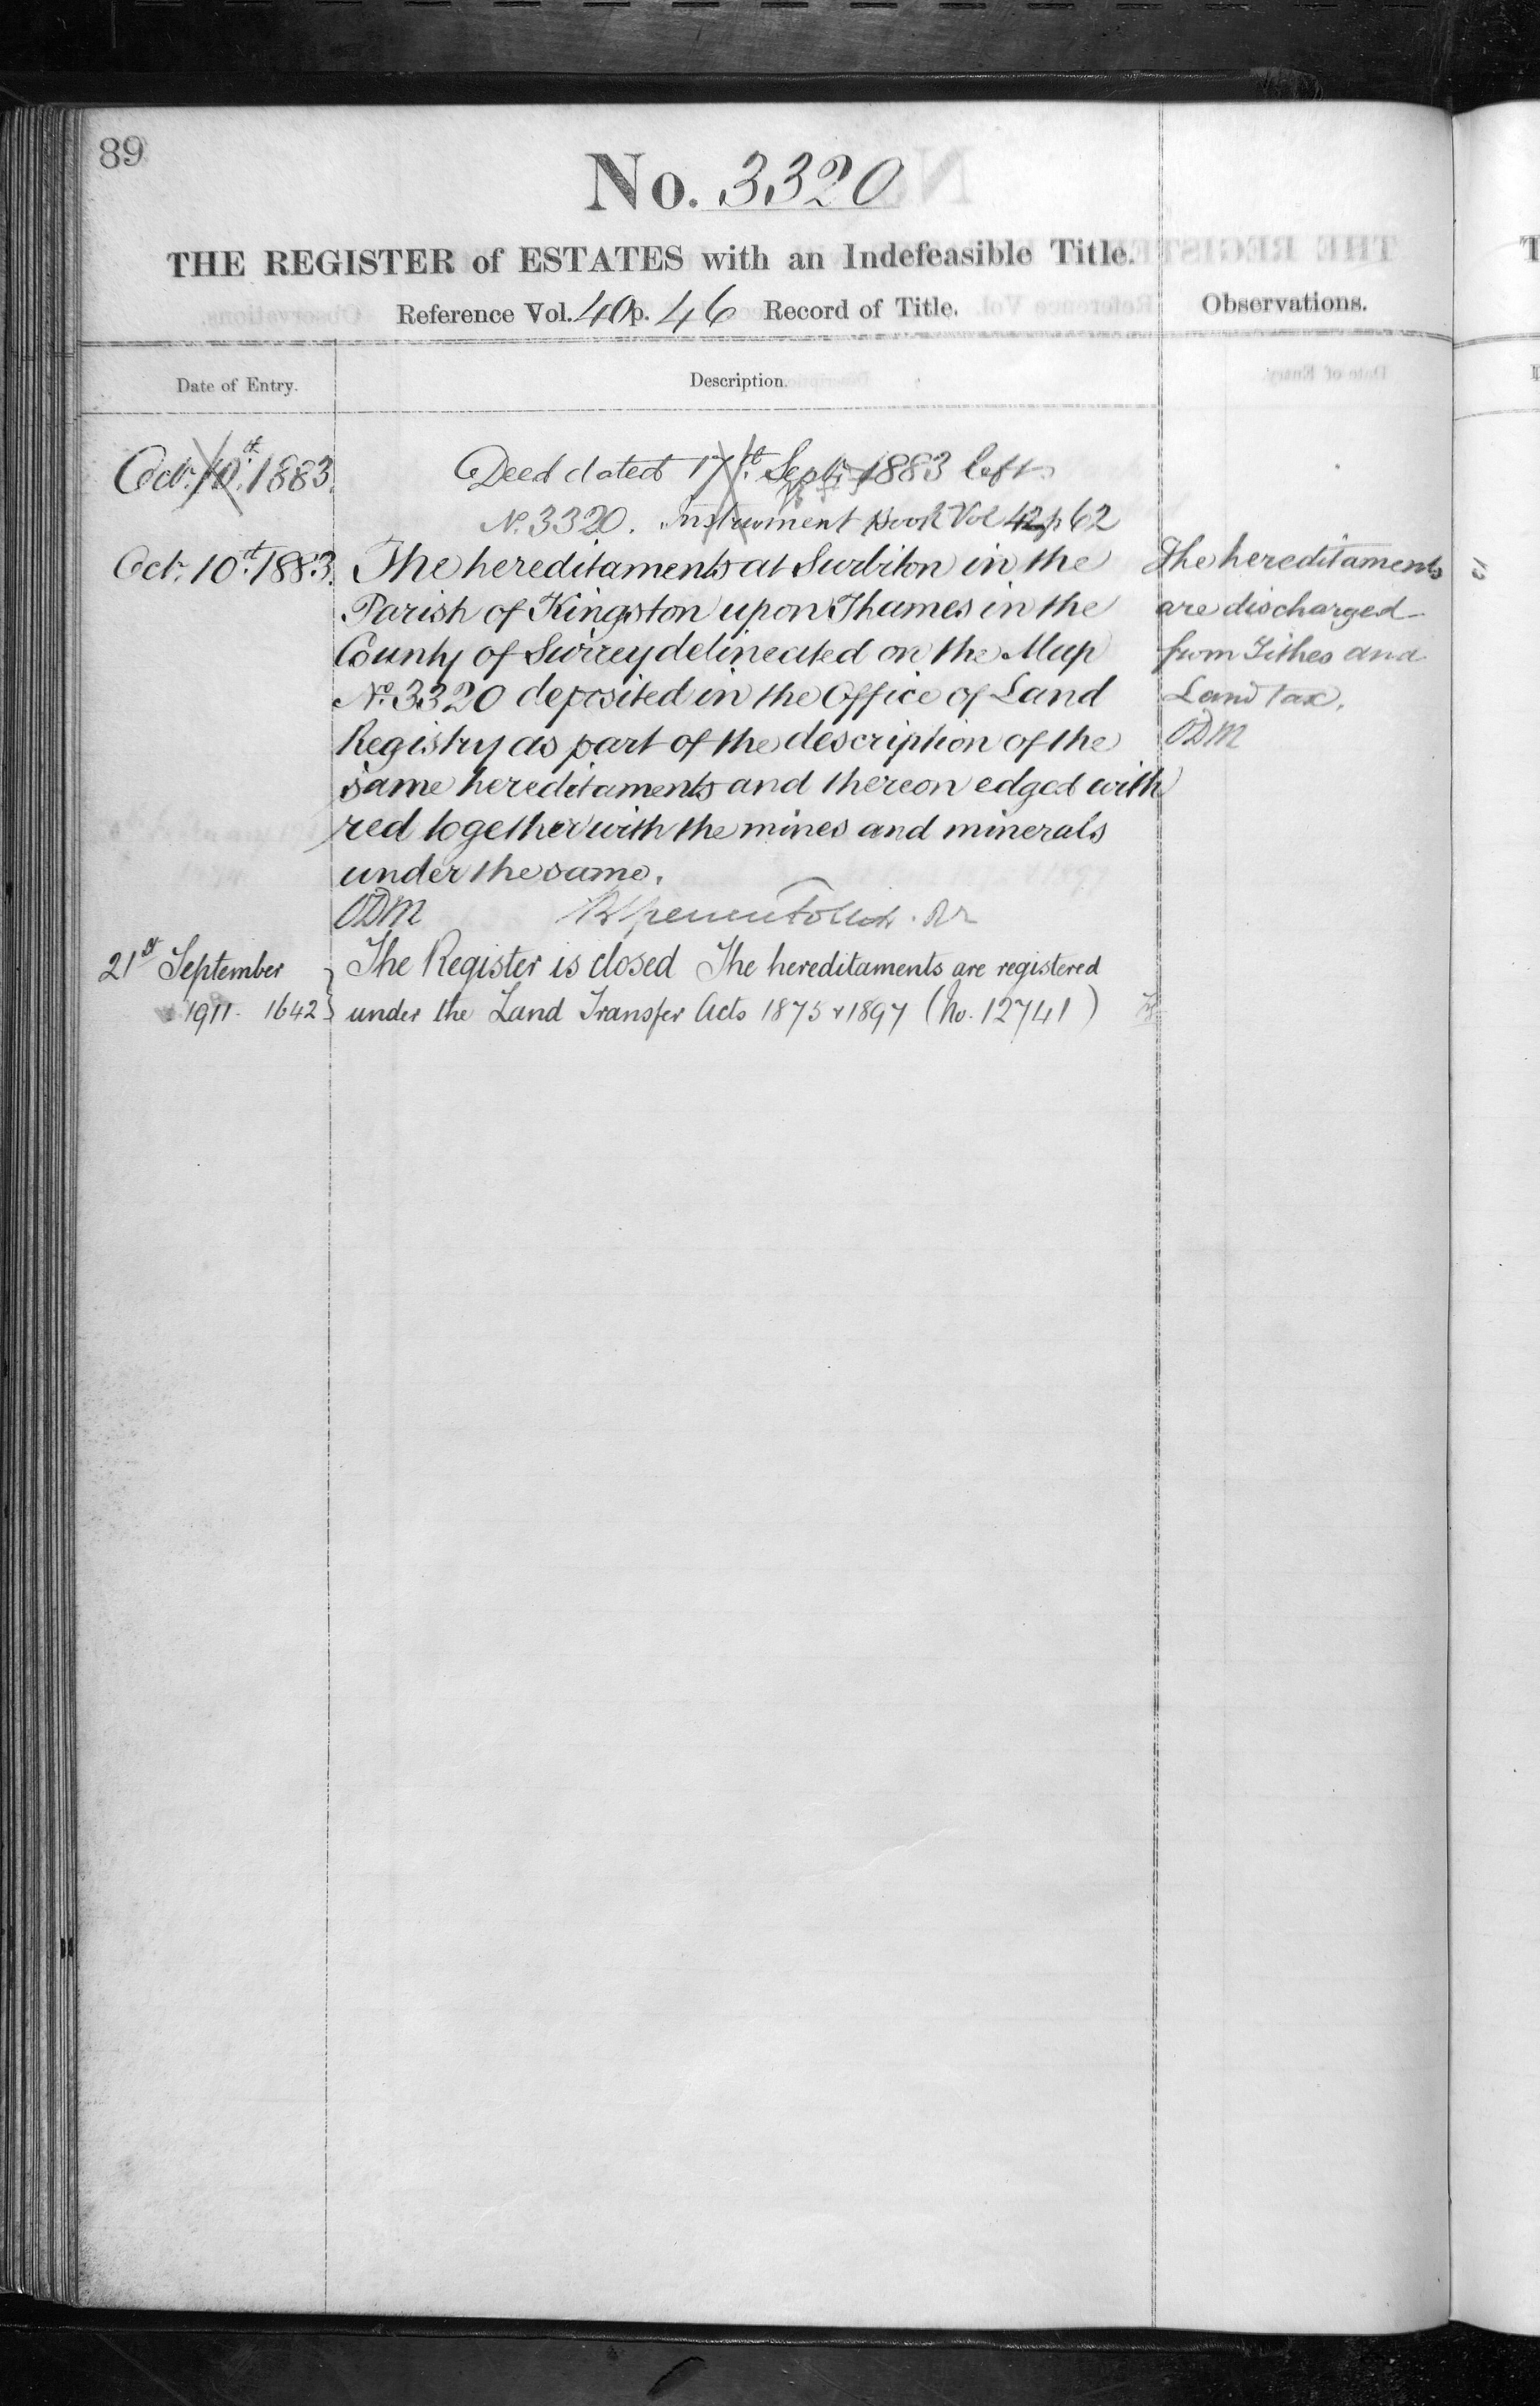 89
No. 3320
THE REGISTER of ESTATES with an Indefeasible Title.
Reference Vol. 40 p. 46 Record of Title.
Observations.
Date of Entry.
Description.
Oct. 10th. 1883.
Deed dated 17th. Sept. 1883 left
No. 3320. Instrument Book Vol 42 p 62
Oct. 10th. 1883.
The hereditaments at Surbiton in the
Parish of Kingston upon Thames in the
County of Surrey delineated on the Map
No. 3320 deposited in the Office of Land
Registry as part of the description of the
same hereditaments and thereon edged with
red together with the mines and minerals
under the same.
ODM
The hereditaments
are discharged
from Tithes and
Land tax.
ODM
21st September
1911. 1642
The Register is closed The hereditaments are registered
under the Land Transfer Acts 1875 & 1897 (No. 12741)